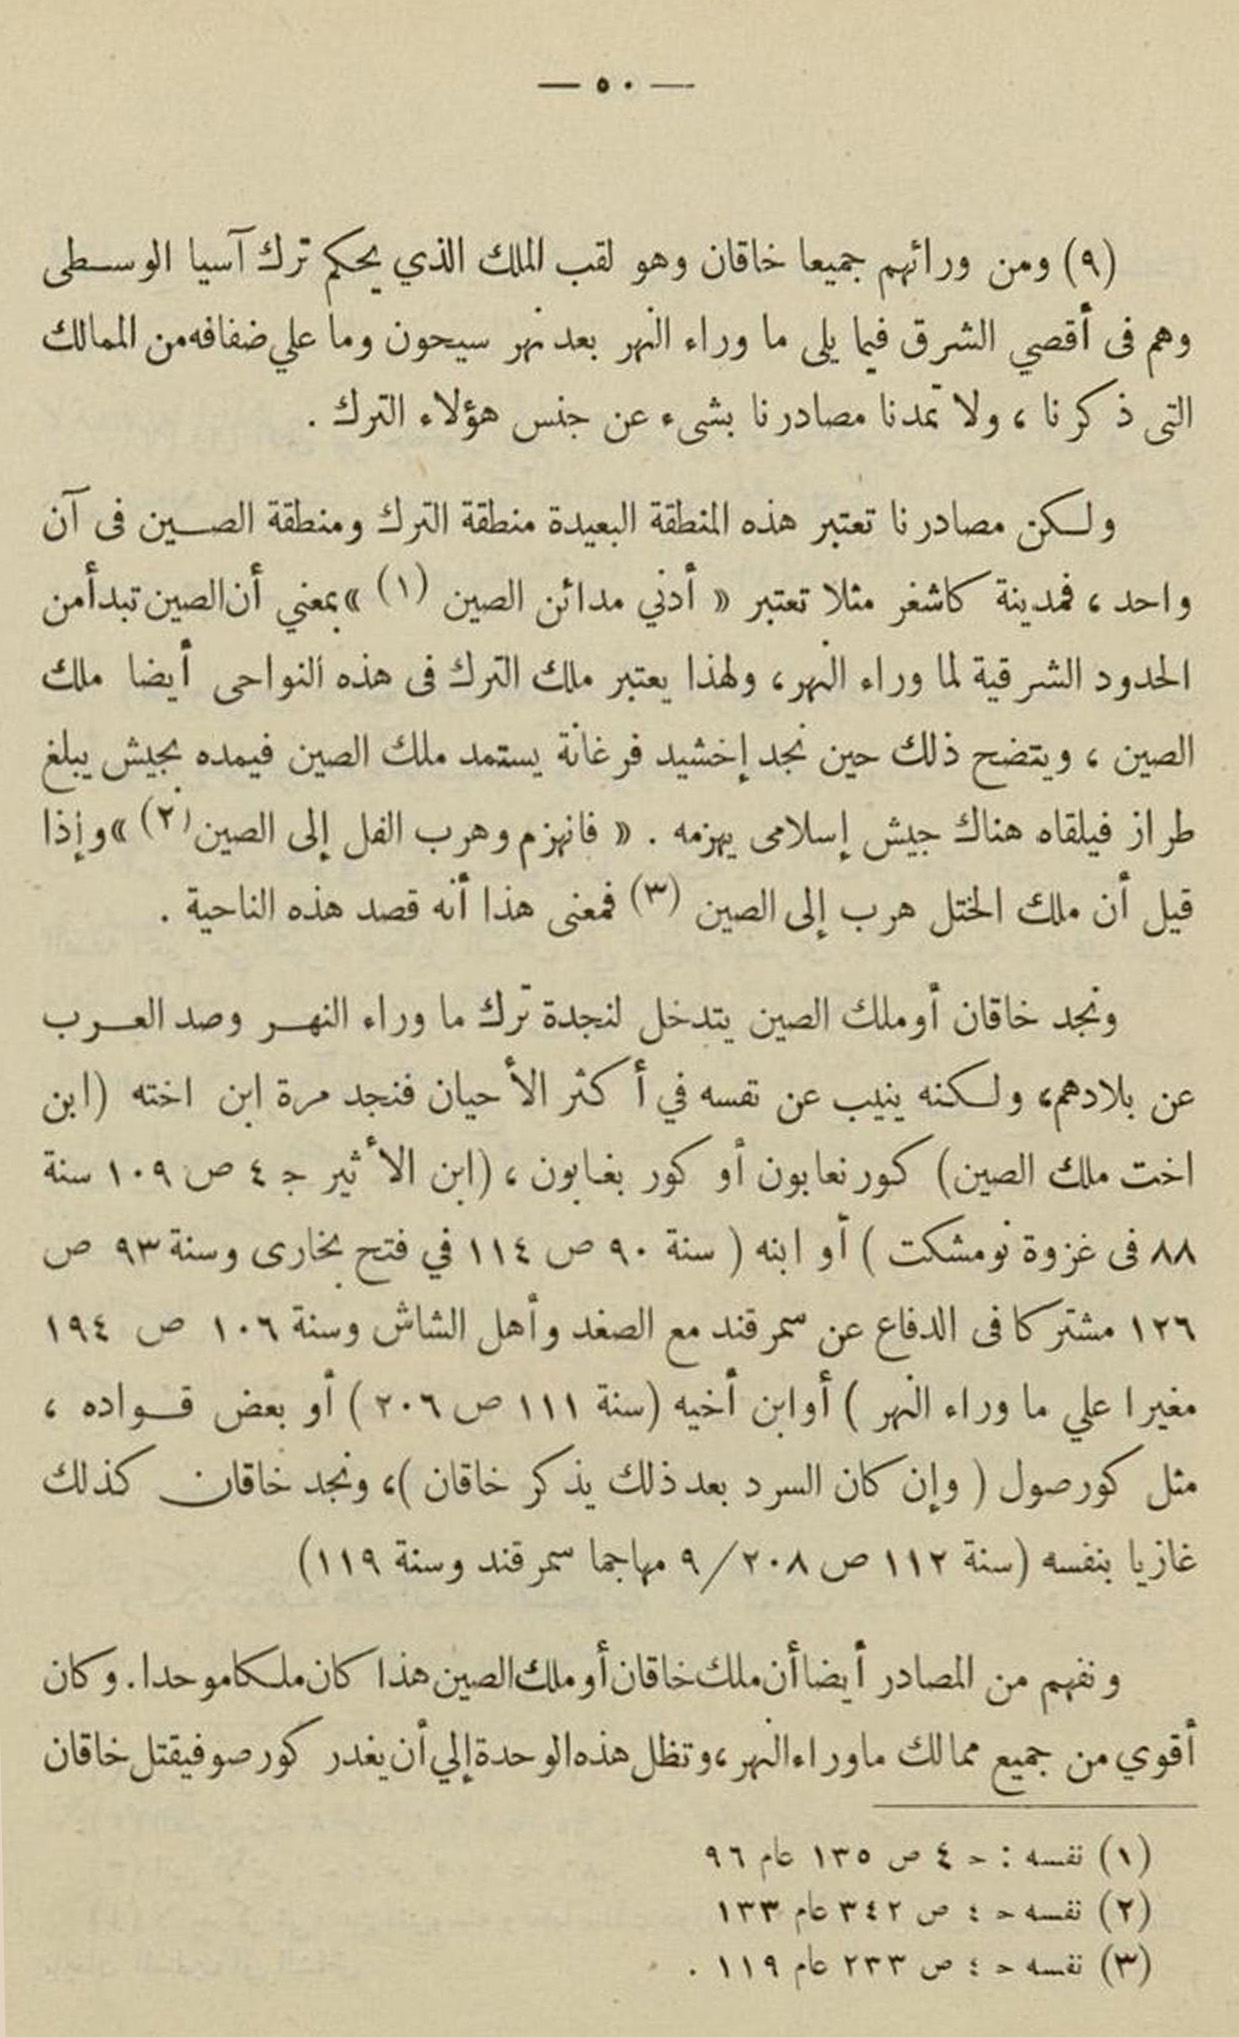 — ٥٠ —
(٩) ومن ورائهم جميعا خاقان وهو لقب الملك الذي يحكم ترك آسيا الوسطى
وهم فى أقصي الشرق فيما يلى ما وراء النهر بعد نهر سيحون وما علي ضفافه من الممالك
التى ذكرنا ، ولا تمدنا مصادرنا بشىء عن جنس هؤلاء الترك .
ولكن مصادرنا تعتبر هذه المنطقة البعيدة منطقة الترك ومنطقة الصين فى آن
واحد ، فمدينة كاشغر مثلا تعتبر « أدني مدائن الصين (١) » بمعني أن الصين تبدأ من
الحدود الشرقية لما وراء النهر ، ولهذا يعتبر ملك الترك فى هذه النواحى أيضا ملك
الصين ، ويتضح ذلك حين نجد إخشيد فرغانة يستمد ملك الصين فيمده بجيش يبلغ
طراز فيلقاه هناك جيش إسلامى يهزمه . « فانهزم وهرب الفل إلى الصين (٢) » وإذا
قيل أن ملك الختل هرب إلى الصين (٣) فمعنى هذا أنه قصد هذه الناحية .
ونجد خاقان أو ملك الصين يتدخل لنجدة ترك ما وراء النهر وصد العرب
عن بلادهم ، ولكنه ينيب عن نفسه في أكثر الأحيان فنجد مرة ابن اخته (ابن
اخت ملك الصين) كورنعابون أو كور بغابون ، (ابن الأثير ج ٤ ص ١٠٩ سنة
٨٨ فى غزوة نومشكت ) أو ابنه ( سنة ٩٠ ص ١١٤ في فتح بخارى وسنة ٩٣ ص
١٢٦ مشتركا فى الدفاع عن سمرقند مع الصغد وأهل الشاش وسنة ١٠٦ ص ١٩٤
مغيرا علي ما وراء النهر ) أو ابن أخيه (سنة ١١١ ص ٢٠٦ ) أو بعض قواده ،
مثل كورصول ( وإن كان السرد بعد ذلك يذكر خاقان ) ، ونجد خاقان كذلك
غازيا بنفسه (سنة ١١٢ ص ٢٠٨/ ٩ مهاجما سمرقند وسنة ١١٩)
ونفهم من المصادر أيضا أن ملك خاقان أو ملك الصين هذا كان ملكا موحدا . وكان
أقوي من جميع ممالك ما وراء النهر ، وتظل هذه الوحدة إلي أن يغدر كورصو فيقتل خاقان
(١) نفسه : ح ٤ ص ١٣٥ عام ٩٦
(٢) نفسه ح ٤ ص ٣٤٢ عام ١٣٣
(٣) نفسه ح ٤ ص ٢٣٣ عام ١١٩ .